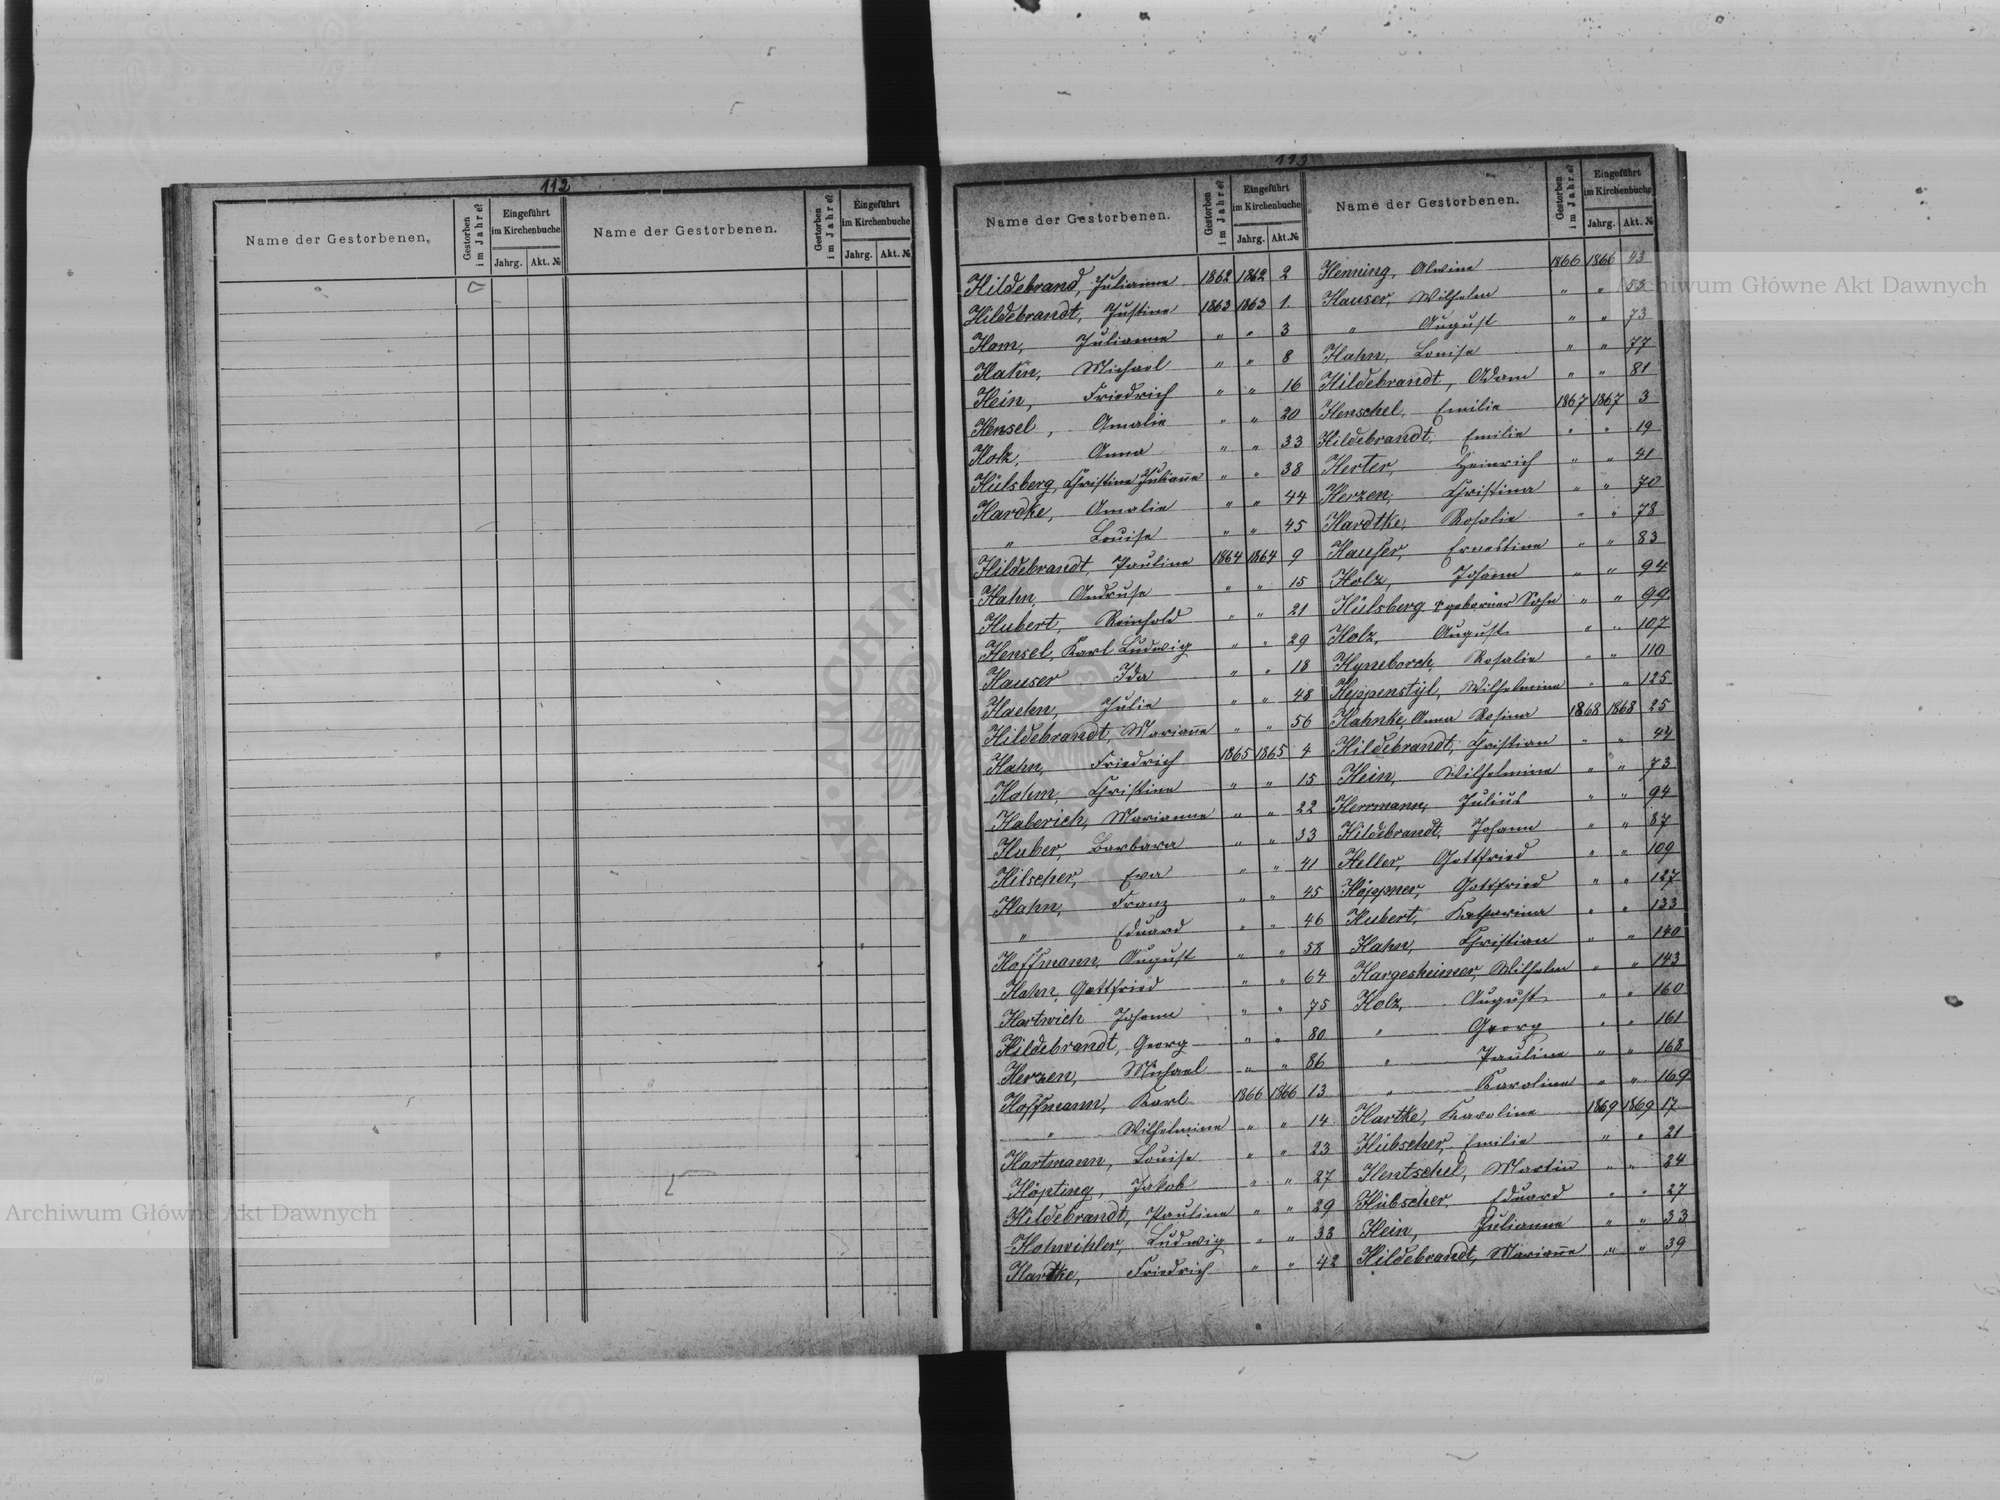 112
Name der Gestorbenen.
Gestorben im Jahre?
Eingeführt im Kirchenbuche
Jahrg. Akt. №
Name der Gestorbenen.
Gestorben im Jahre?
Eingeführt im Kirchenbuche
Jahrg. Akt. №
113
Name der Gestorbenen.
Gestorben im Jahre?
Eingeführt im Kirchenbuche
Jahrg. Akt. №
Hildebrand, Julianne 1862 1862 2
Hildebrandt, Justine 1863 1863 1.
Ham, Julianne " " 3
Hahn, Michael " " 8
Hein, Friedrich " " 16
Hensel, Amalie " " 20
Holz, Anna " " 33
Hülsberg, Christine Julianne " " 38
Hardke, Amalie " " 44
" Louise " " 45
Hildebrandt, Pauline 1864 1864 9
Hahn, Andreas " " 15
Hubert, Reinhold " " 21
Hensel, Karl Ludwig " " 29
Hauser Ida " " 18
Haehn, Julie " " 48
Hildebrandt, Marianne " " 56
Hahn, Friedrich 1865 1865 4
Hahm, Christine " " 15
Haberich, Marianne " " 22
Huber, Barbara " " 33
Hilscher, Eva " " 41
Hahn, Franz " " 45
" Eduard " " 46
Hoffmann, August " " 58
Hahn, Gottfried " " 64
Hartwich Johann " " 75
Hildebrandt, Georg " " 80
Herzen, Michael " " 86
Hoffmann, Karl 1866 1866 13
" Wilhelmine " " 14
Hartmann, Louise " " 23
Höpting, Jakob " " 27
Hildebrandt, Pauline " " 29
Hohwihler, Ludwig " " 33
Hardke, Friedrich " " 42
Name der Gestorbenen.
Gestorben im Jahre?
Eingeführt im Kirchenbuche
Jahrg. Akt. №
Henning, Alwine 1866 1866 43
Hauser, Wilhelm " " 53
" August " " 73
Hahn, Louise " " 77
Hildebrandt, Adam " " 81
Henschel, Emilie 1867 1867 3
Hildebrandt, Emilie " " 19
Herter, Heinrich " " 41
Herzen, Christina " " 70
Hardtke, Rosalie " " 78
Hauser, Ernestine " " 83
Holz, Johann " " 94
Hülsberg geborner Sohn " " 99
Holz, August " " 107
Hyneborch, Rosalie " " 110
Heppenstyl, Wilhelmine " " 125
Hahnke, Anna Rosina 1868 1868 25
Hildebrandt, Christian " " 44
Hein, Wilhelmine " " 73
Herrmann, Julius " " 94
Hildebrandt, Johann " " 87
Heller, Gottfried " " 109
Höppner, Gottfried " " 127
Hubert, Katharina " " 133
Hahn, Christian " " 140
Hargesheimer, Wilhelm " " 143
Holz, August " " 160
" Georg " " 161
" Pauline " " 168
" Karoline " " 169
Hartke, Karoline 1869 1869 17
Hübscher, Emilie " " 21
Hentschel, Martin " " 24
Hübscher, Eduard " " 27
Hein, Julianne " " 33
Hildebrandt, Marianne " " 39
Archiwum Główne Akt Dawnych
Archiwum Główne Akt Dawnych